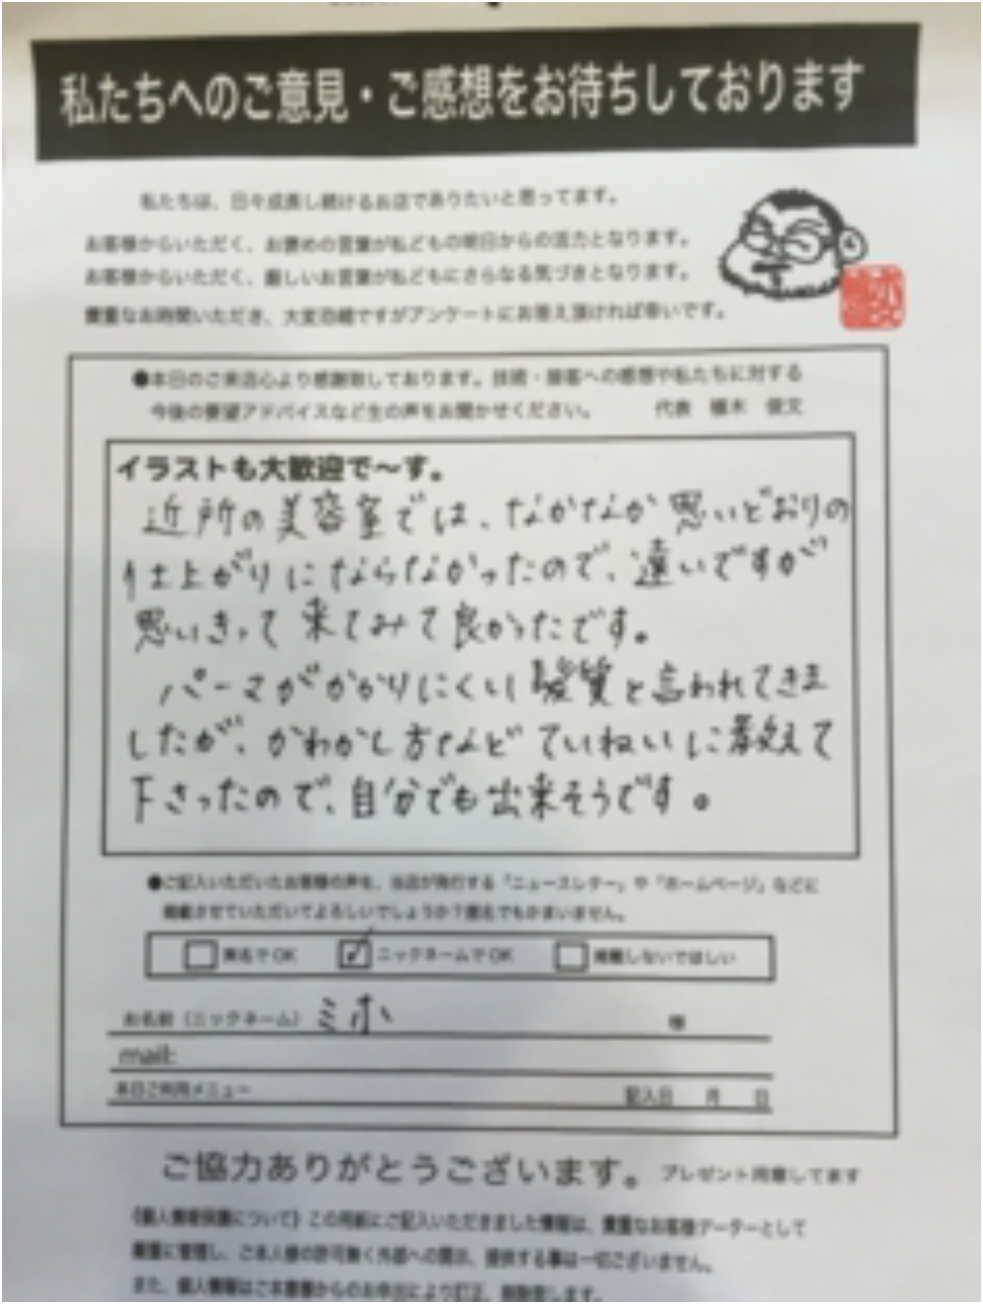 私たちへのご意見・ご感想をお待ちしております
私たちは、日々成長し続けるお店でありたいと思ってます。
お客様からいただく、お褒めの言葉が私どもの明日からの活力となります。
お客様からいただく、厳しいお言葉が私どもにさらなる気づきとなります。
貴重なお時間いただき、大変恐縮ですがアンケートにお答え頂ければ幸いです。
●本日のご来店心より感謝致しております。技術・接客への感想や私たちに対する
今後の要望アドバイスなど生の声をお聞かせください。 代表 植木 俊文
イラストも大歓迎で〜す。
近所の美容室では、なかなか思いどおりの
仕上がりにならなかったので、遠いですが
思いきって来てみて良かったです。
パーマがかかりにくい髪質と言われてきま
したが、かわかし方などていねいに教えて
下さったので、自分でも出来そうです。
●ご記入いただいたお客様の声を、当店が発行する「ニュースレター」や「ホームページ」などに
掲載させていただいてよろしいでしょうか?匿名でもかまいません。
実名でOK ニックネームでOK 掲載しないでほしい
お名前(ニックネーム) ミホ 様
mail:
本日ご利用メニュー 記入日 月 日
ご協力ありがとうございます。 プレゼント用意してます
《個人情報保護について》この用紙にご記入いただきました情報は、貴重なお客様データーとして
厳重に管理し、ご本人様の許可無く外部への開示、提供する事は一切ございません。
また、個人情報はご本人様からのお申出により訂正、削除致します。